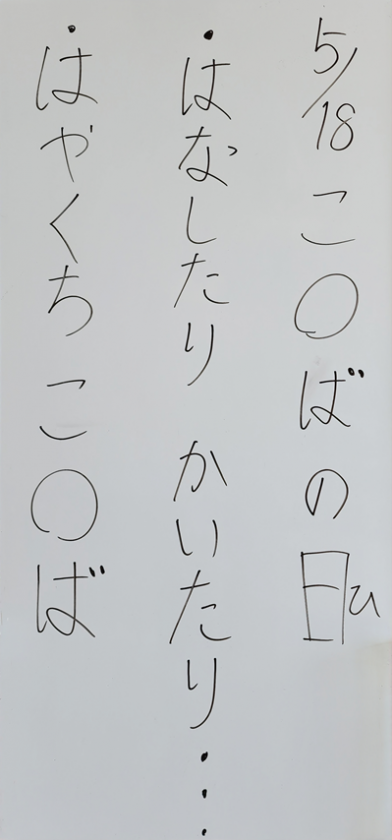 5/18 こ〇ばの日ひ
・はなしたり かいたり・・・
・はやくち こ〇ば